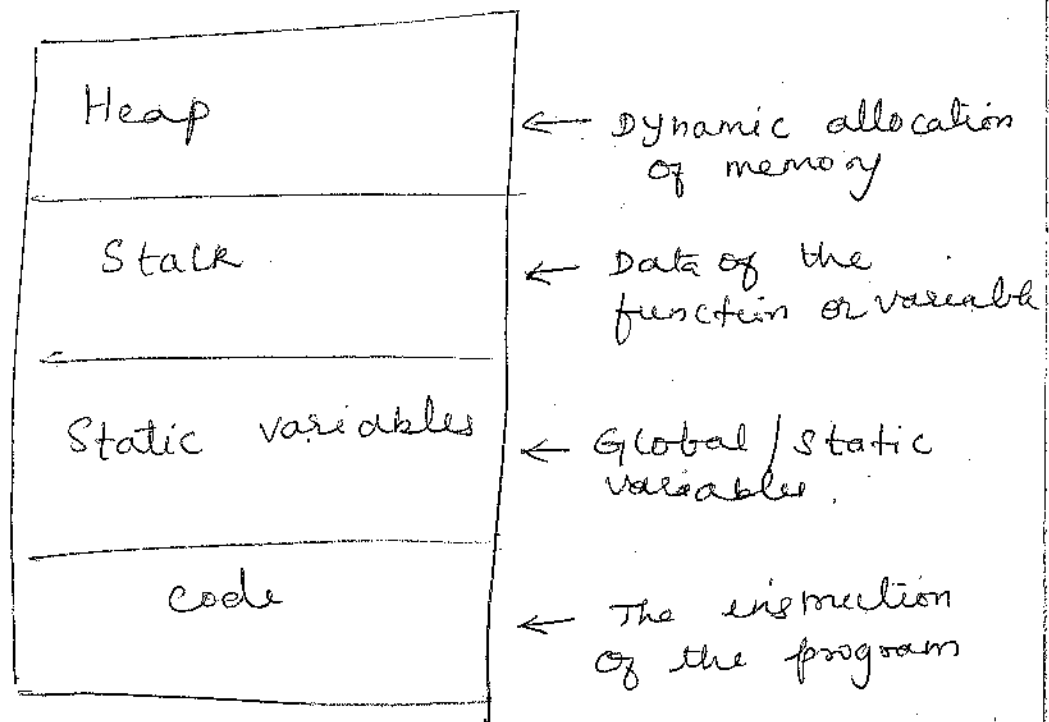 Heap
← Dynamic allocation
of memory
Stack
← Data of the
function or variable
Static variables
← Global / static
variables.
code
← The instruction
of the program